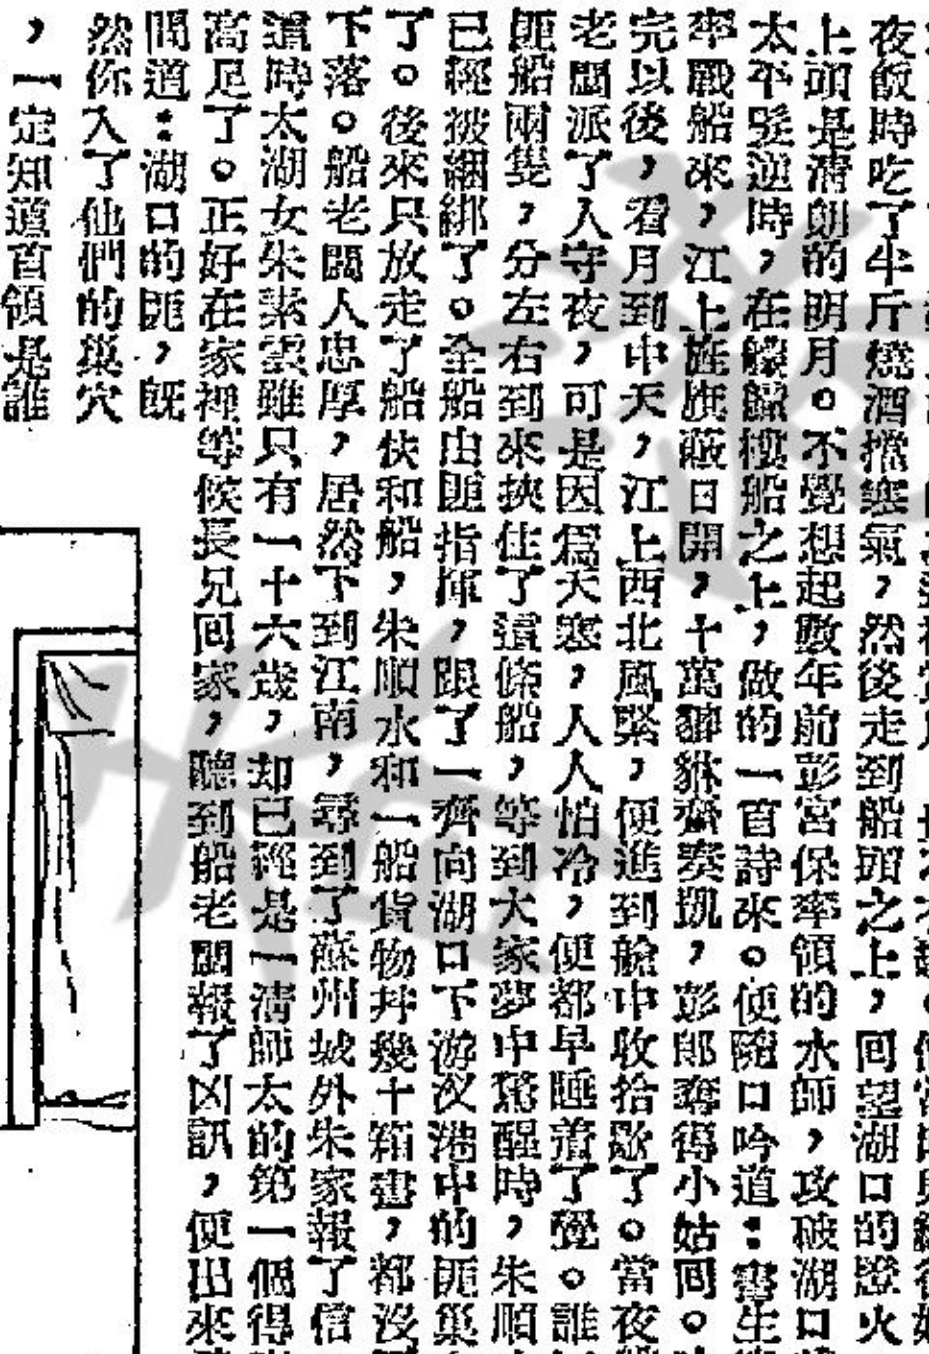 夜飯時吃了半斤燒酒擋寒氣，然後走到船頭之上，回望湖口的燈火
上頭是清朗的明月。不覺想起數年前彭宮保率領的水師，攻破湖口
太平髮逆時，在艨艟樓船之上，做的一首詩來。便隨口吟道：書生
率戰船來，江上旌旗蔽日開，十萬貔貅齊奏凱，彭郎奪得小姑回。
完以後，看月到中天，江上西北風緊，便進到艙中收拾歇了。當夜
老闆派了人守夜，可是因爲天寒，人人怕冷，便都早睡着了覺。誰
匪船兩隻，分左右到來挾住了這條船，等到大家夢中驚醒時，朱順
已經被綑綁了。全船由匪指揮，跟了一齊向湖口下游汊港中的匪巢
了。後來只放走了船伕和船，朱順水和一船貨物幷幾十箱書，都沒
下落。船老闆人忠厚，居然下到江南，尋到了蘇州城外朱家報了信
這時太湖女朱素雲雖只有一十六歲，却已經是一清師太的第一個得
高足了。正好在家裡等候長兄回家，聽到船老闆報了凶訊，便出來
問道：湖口的匪，旣
然你入了他們的巢穴
，一定知道首領是誰